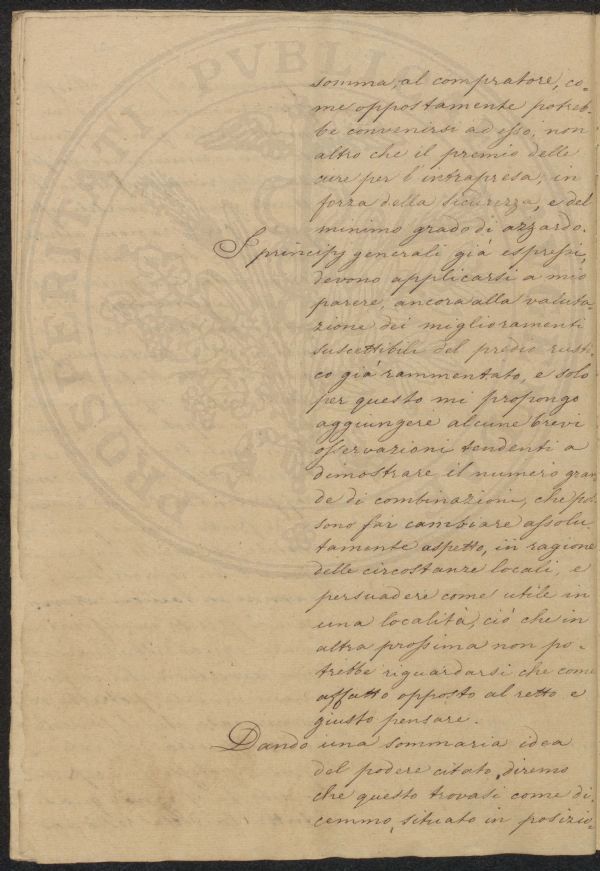 PROSPERITATI PVBLIC
somma, al compratore, co=
me oppostamente potreb=
be convenirsi ad esso, non
altro che il premio delle
cure per l'intrapresa, in
forza della sicurezza, e del
minimo grado di azzardo.
I principj generali già espressi,
devono applicarsi a mio
parere, ancora alla valuta=
zione dei miglioramenti
suscettibili del predio rusti=
co già rammentato, e solo
per questo mi propongo
aggiungere alcune brevi
osservazioni tendenti a
dimostrare il numero gran
de di combinazioni, che pos
sono far cambiare assolu
tamente aspetto, in ragione
delle circostanze locali, e
persuadere come utile in
una località, ciò che in
altra prossima non po=
trebbe riguardarsi che come
affatto opposto al retto e
giusto pensare.
Dando una sommaria idea
del podere citato, diremo
che questo trovasi come di=
cemmo, situato in posizio=